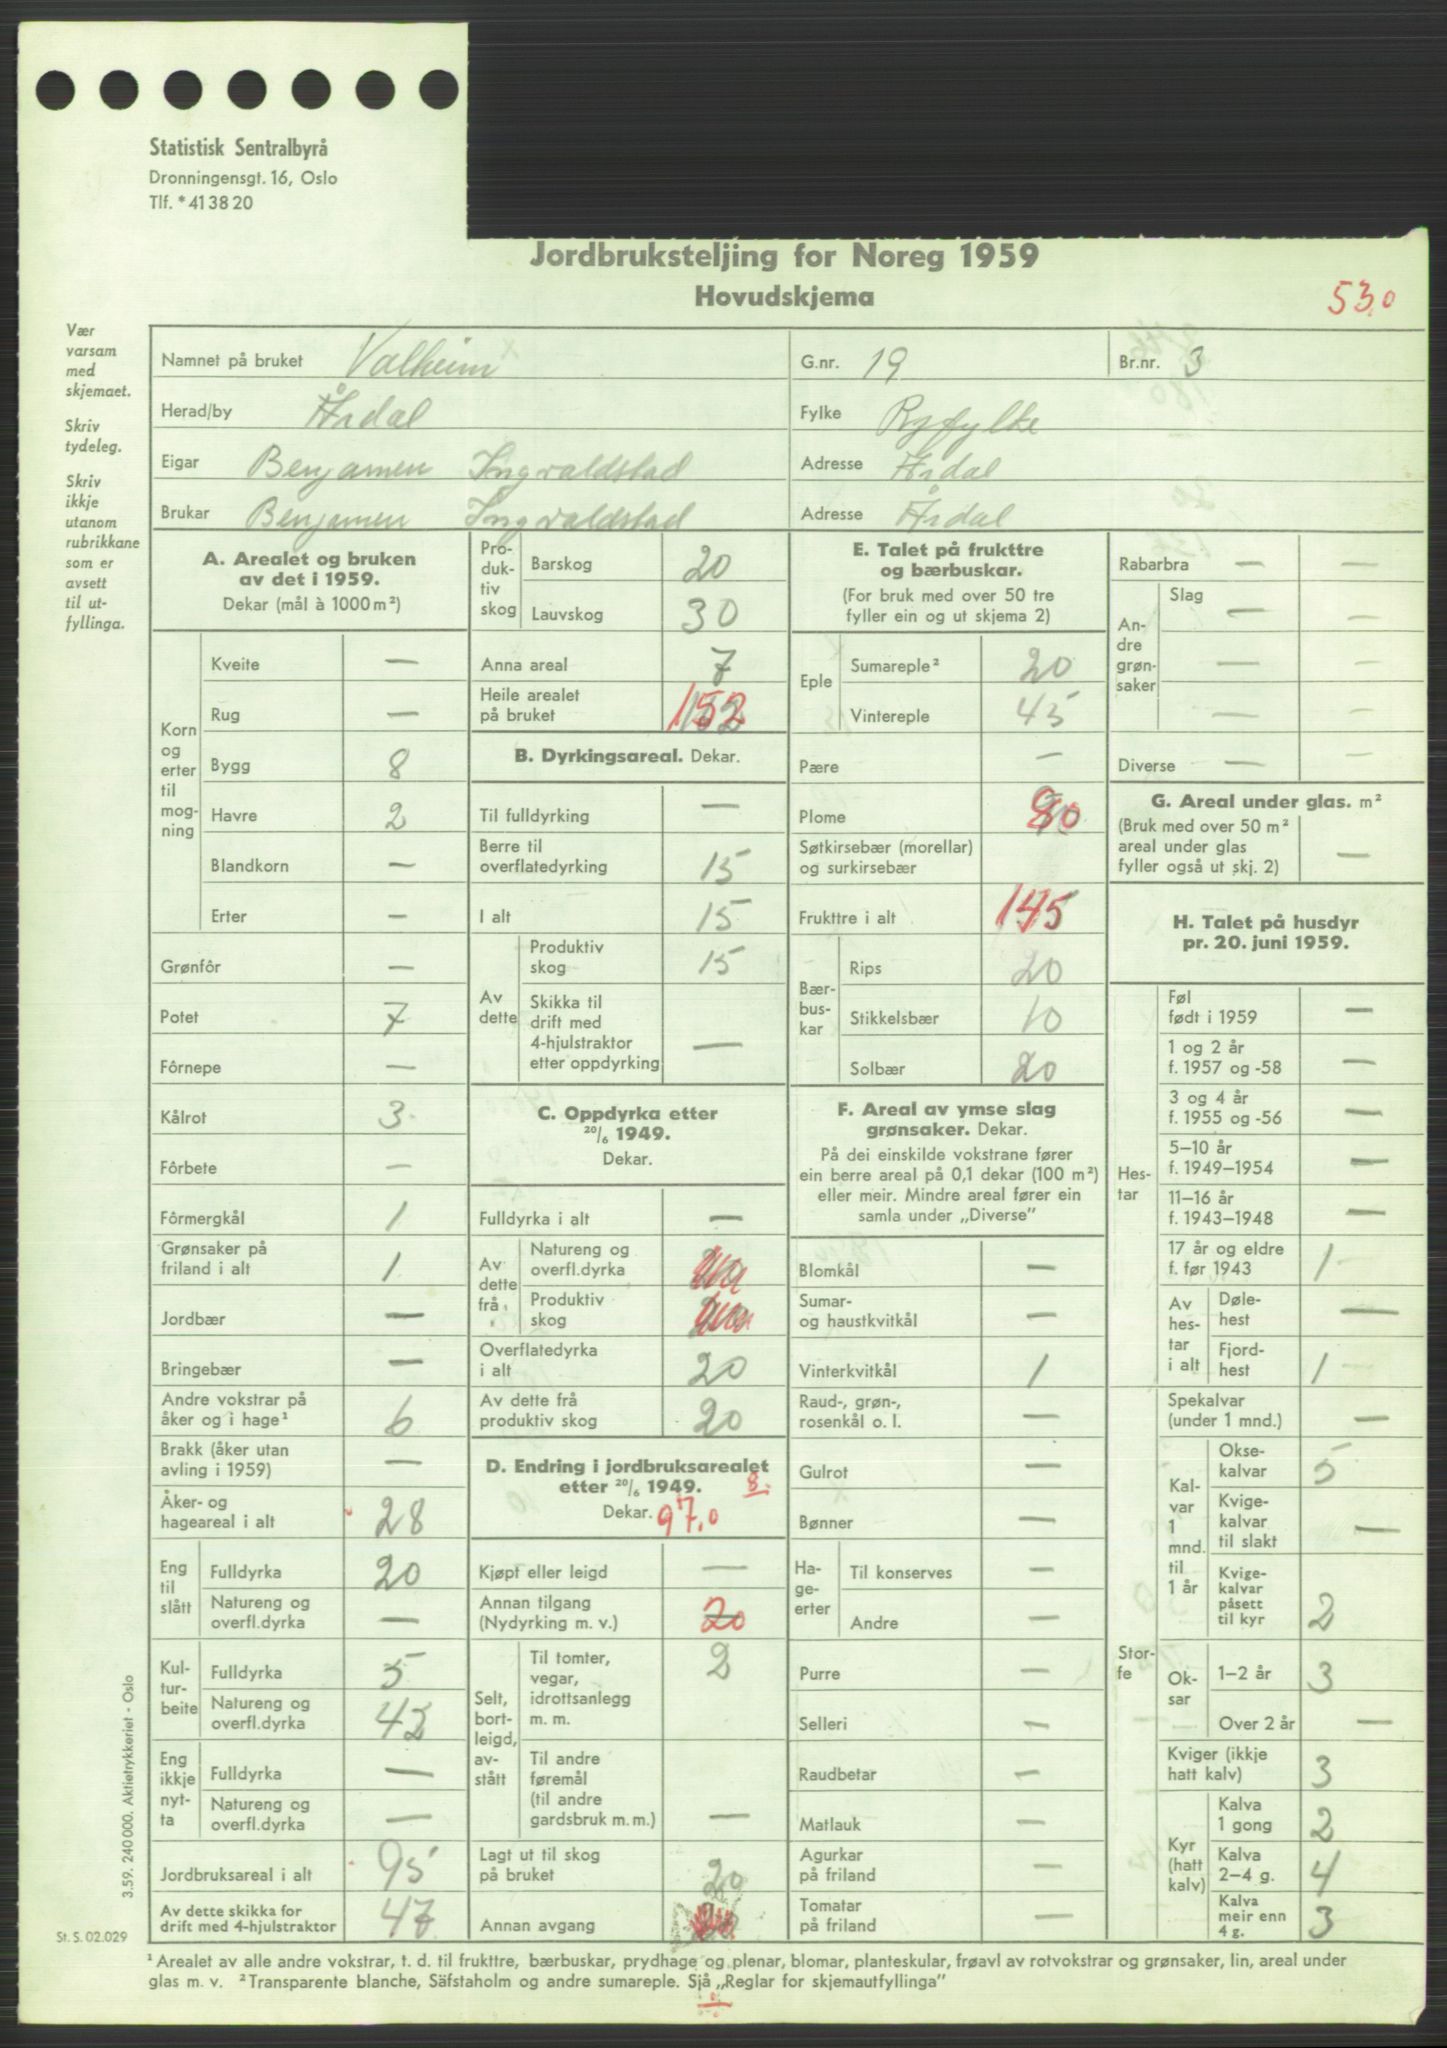 Statistisk Sentralbyrå
Dronningensgt. 16, Oslo
Tlf. *41 38 20
Jordbruksteljing for Noreg 1959
Hovudskjema
53,0
Vær
varsam
med
skjemaet.
Skriv
tydeleg.
Skriv
ikkje
utanom
rubrikkane
som er
avsett
til ut-
fyllinga.
Namnet på bruket Valheim G.nr. 19 Br.nr. 3
Herad/by Årdal Fylke Ryfylke
Eigar Benjamen Ingvaldstad Adresse Årdal
Brukar Benjamen Ingvaldstad Adresse Årdal
A. Arealet og bruken
av det i 1959.
Dekar (mål à 1000 m²)
Korn og erter til mog- ning
Kveite —
Rug —
Bygg 8
Havre 2
Blandkorn —
Erter —
Grønfôr —
Potet 7
Fôrnepe —
Kålrot 3
Fôrbete —
Fôrmergkål 1
Grønsaker på
friland i alt 1
Jordbær —
Bringebær —
Andre vokstrar på
åker og i hage¹ 6
Brakk (åker utan
avling i 1959) —
Åker- og
hageareal i alt 28
Eng til slått
Fulldyrka 20
Natureng og
overfl.dyrka —
Kul- tur- beite
Fulldyrka 5
Natureng og
overfl.dyrka 42
Eng ikkje nyt- ta
Fulldyrka —
Natureng og
overfl.dyrka —
Jordbruksareal i alt 95
Av dette skikka for
drift med 4-hjulstraktor 47
Pro- duk- tiv skog
Barskog 20
Lauvskog 30
Anna areal 7
Heile arealet
på bruket 152
B. Dyrkingsareal. Dekar.
Til fulldyrking —
Berre til
overflatedyrking 15
I alt 15
Av dette
Produktiv
skog 15
Skikka til
drift med
4-hjulstraktor
etter oppdyrking —
C. Oppdyrka etter
20/6 1949.
Dekar.
Fulldyrka i alt —
Av dette frå
Natureng og
overfl.dyrka
Produktiv
skog
Overflatedyrka
i alt 20
Av dette frå
produktiv skog 20
D. Endring i jordbruksarealet
etter 20/6 1949. 8.
Dekar. 97,0
Kjøpt eller leigd —
Annan tilgang
(Nydyrking m. v.) 20
Selt, bort- leigd, av- stått
Til tomter,
vegar,
idrottsanlegg
m. m. 2
Til andre
føremål
(til andre
gardsbruk m. m.) —
Lagt ut til skog
på bruket 20
Annan avgang
E. Talet på frukttre
og bærbuskar.
(For bruk med over 50 tre
fyller ein og ut skjema 2)
Eple
Sumareple² 20
Vintereple 45
Pære —
Plome 80
Søtkirsebær (morellar)
og surkirsebær
Frukttre i alt 145
Bær- bus- kar
Rips 20
Stikkelsbær 10
Solbær 20
F. Areal av ymse slag
grønsaker. Dekar.
På dei einskilde vokstrane fører
ein berre areal på 0,1 dekar (100 m²)
eller meir. Mindre areal fører ein
samla under „Diverse”
Blomkål —
Sumar-
og haustkvitkål —
Vinterkvitkål 1
Raud-, grøn-,
rosenkål o. l. —
Gulrot —
Bønner —
Ha- ge- erter
Til konserves —
Andre —
Purre —
Selleri —
Raudbetar —
Matlauk —
Agurkar
på friland —
Tomatar
på friland —
Rabarbra — —
An- dre grøn- saker
Slag
— —
— —
— —
Diverse — —
G. Areal under glas. m²
(Bruk med over 50 m²
areal under glas
fyller også ut skj. 2) —
H. Talet på husdyr
pr. 20. juni 1959.
Hes- tar
Føl
født i 1959 —
1 og 2 år
f. 1957 og -58 —
3 og 4 år
f. 1955 og -56 —
5–10 år
f. 1949–1954 —
11–16 år
f. 1943–1948 —
17 år og eldre
f. før 1943 1
Av hes- tar i alt
Døle-
hest —
Fjord-
hest 1
Stor- fe
Spekalvar
(under 1 mnd.) —
Kal- var 1 mnd. til 1 år
Okse-
kalvar 5
Kvige-
kalvar
til slakt —
Kvige-
kalvar
påsett
til kyr 2
Ok- sar
1–2 år 3
Over 2 år —
Kviger (ikkje
hatt kalv) 3
Kyr (hatt kalv)
Kalva
1 gong 2
Kalva
2–4 g. 4
Kalva
meir enn
4 g. 3
3.59. 240 000. Aktietrykkeriet - Oslo
St. S. 02.029
¹ Arealet av alle andre vokstrar, t. d. til frukttre, bærbuskar, prydhage og plenar, blomar, planteskular, frøavl av rotvokstrar og grønsaker, lin, areal under
glas m. v. ² Transparente blanche, Säfstaholm og andre sumareple. Sjå „Reglar for skjemautfyllinga”